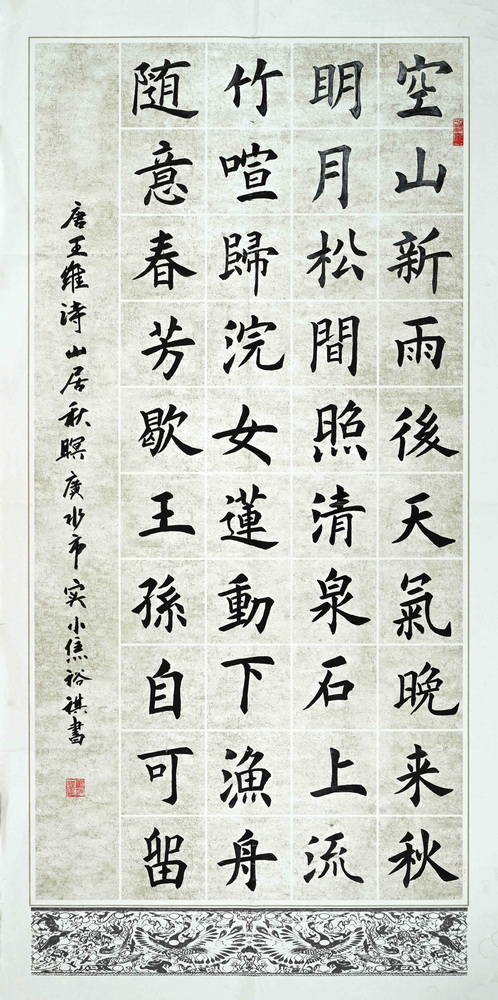 空山新雨後天氣晚来秋
明月松間照清泉石上流
竹喧歸浣女蓮動下漁舟
随意春芳歇王孫自可留
唐王維诗山居秋暝廣水市实小焦裕祺書